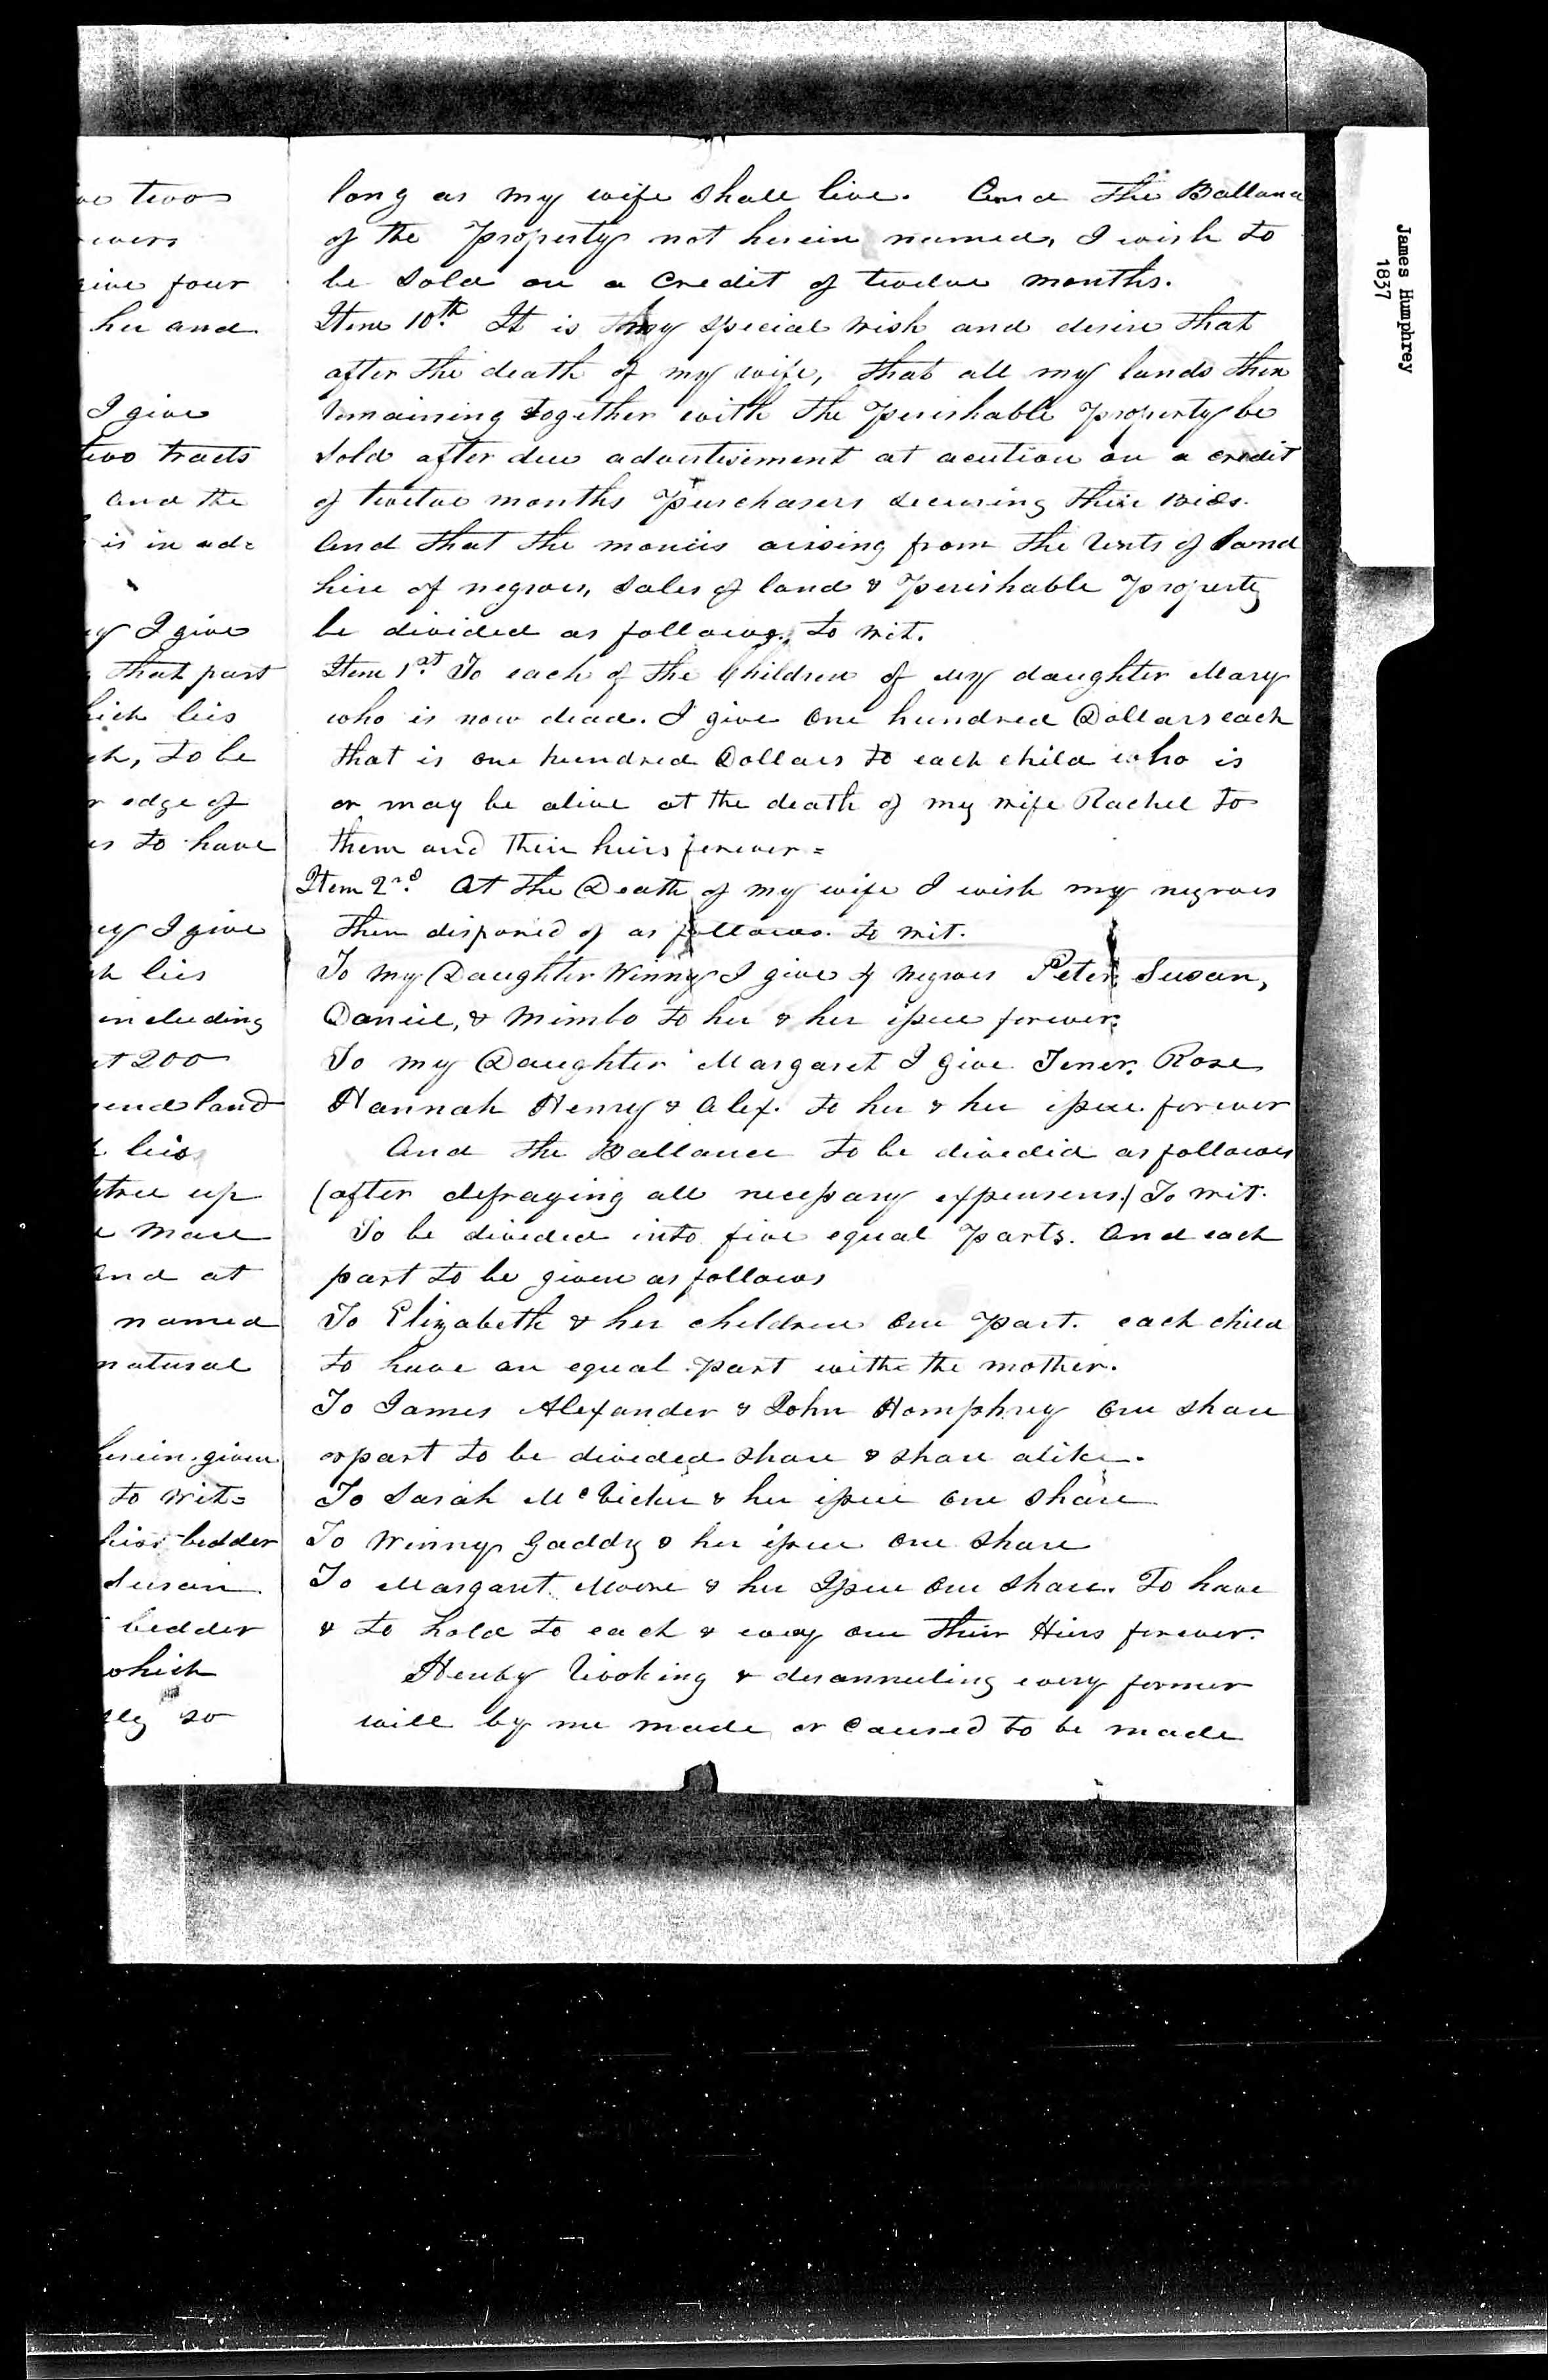 long as my wife shall live. And the Ballance
of the Property not herein named, I wish to
be Sold on a Credit of twelve months.
Item 10th. It is my special wish and desire that
after the death of my wife, that all my lands then
remaining together with the perishable property be
sold after due advertisement at acution on a credit
of twelve months Purchasers securing their bids.
And that the monies arising from the rents of land
hire of negroes, sales of land & perishable property
be divided as follows, to wit.
Item 1st. To each of the Children of my daughter Mary
who is now dead. I give One hundred Dollars each
that is one hundred Dollars to each child who is
or may be alive at the death of my wife Rachel to
them and their heirs forever =
Item 2nd. At the Death of my wife I wish my negroes
then disposed of as follows. to wit.
To my Daughter Winny I give 4 negroes Peter Susan,
Daniel, & Mimbo to her & her issue forever.
To my Daughter Margaret I give Tener, Rose
Hannah Henry & Alex. to her & her issue forever
And the Ballance to be divided as follows
(after defraying all necessary expensens.) To wit.
To be divided into five equal Parts. And each
part to be given as follows
To Elizabeth & her children One Part. each child
to have an equal part withe the mother.
To James Alexander & John Homphrey One share
or part to be divided share & share alike.
To Sarah McVicker & her issue One Share
To Winny Gaddy & her issue One Share
To Margaret Moore & her Issue One Share. To have
& to hold to each & every one their Heirs forever.
Heuby revoking & disannulling every former
will by me made or Caused to be made
two
four
her and
I give
two tracts
And the
is in ad=
I give
that part
lies
to be
edge of
to have
I give
lies
including
200
land
lies
up
at
named
natural
herein given
to wit=
bidder
Susan
bidder
which
so
James Humphrey
1837